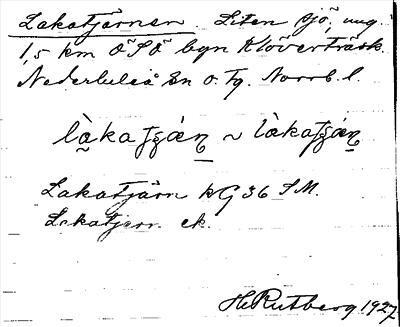 Lakatjärnen. Liten sjö, ung.
1,5 km ÖSÖ byn Klöverträsk.
Nederluleå sn o. tg. Norrb. l.
Lakatjärn kG 36 SM.
Lakatjern ek.
H. Rutberg 1927